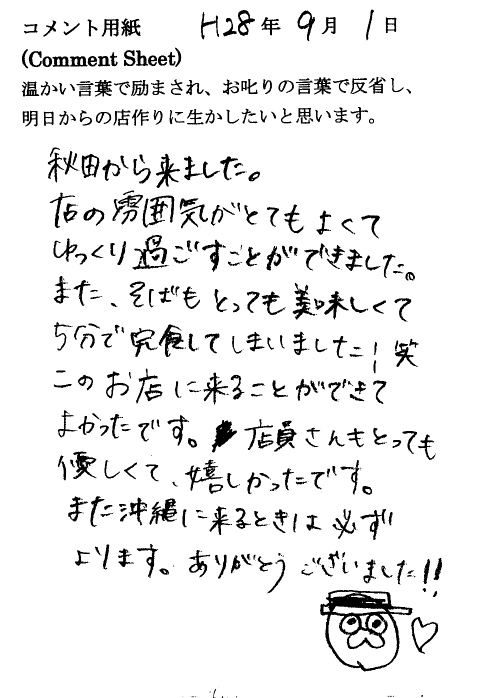 コメント用紙 H28年 9月 1日
(Comment Sheet)
温かい言葉で励まされ、お叱りの言葉で反省し、
明日からの店作りに生かしたいと思います。
秋田から来ました。
店の雰囲気がとてもよくて
ゆっくり過ごすことができました。
また、そばもとっても美味しくて
5分で完食してしまいました!笑
このお店に来ることができて
よかったです。店員さんもとっても
優しくて、嬉しかったです。
また沖縄に来るときは必ず
よります。ありがとうございました!!